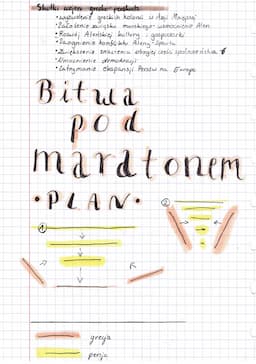 Skutki wojen grecko perskich
• wyzwolenie greckich kolonii w Azji Mniejszej
• Założenie związku morskiego - wzmocnienie Aten
• Rozwój Ateńskiej kultury i gospodarki
• Zaognienie konfliktu Ateny - Sparta
• Zwiększenie znaczenia ubogiej części społeczeństwa
• Umocnienie demokracji
• Zatrzymanie ekspansji Persów na Europę
Bitwa
pod
maratonem
• PLAN •
1
2
grecja
persja